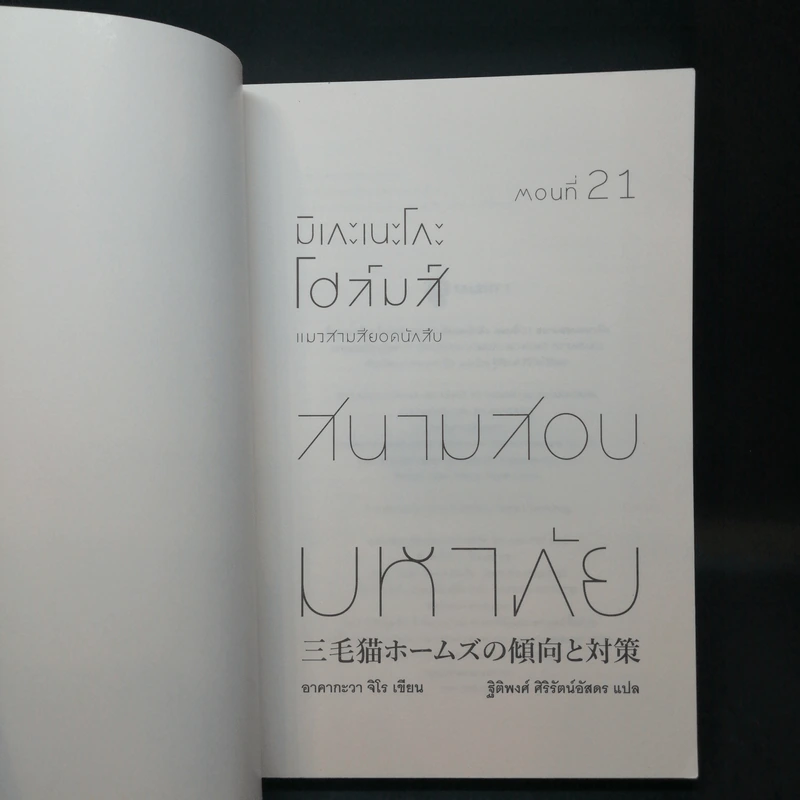 ตอนที่ 21
มิเกะเนะโกะ
โฮล์มส์
แมวสามสียอดนักสืบ
สนามสอบ
มหาภัย
三毛猫ホームズの傾向と対策
อาคากะวา จิโร เขียน ฐิติพงศ์ ศิริรัตน์อัสดร แปล